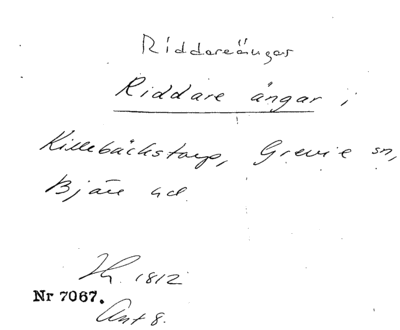 Riddareängar
Riddare ängar i
Killebäckstorp, Grevie sn,
Bjäre hd
Hh. 1812
Nr 7067.
Ant 8.